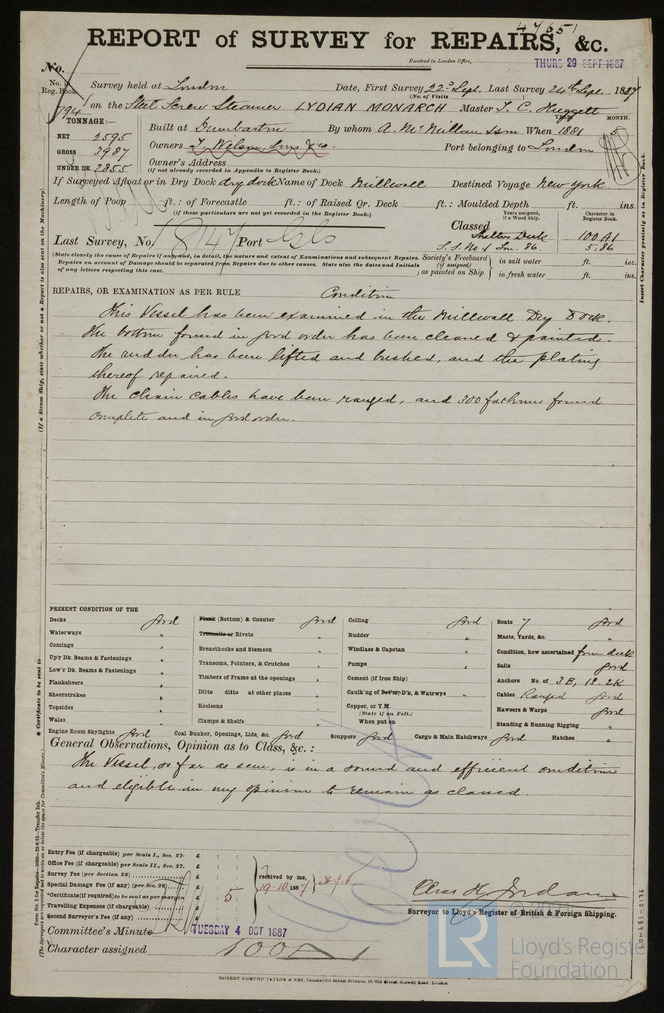 47651
REPORT of SURVEY for REPAIRS, &c.
Received in London Office,
THURS 29 SEPT 1887
No.
No. in Reg. Book.
Survey held at London Date, First Survey 22d Sept. Last Survey 24th Sept. 1887
(No. of Visits
794 on the Steel Screw Steamer LYDIAN MONARCH Master T. C. Huggett
TONNAGE:—
YEAR MONTH.
Built at Dumbarton By whom A. McMillan & Son When 1881
NET 2595
GROSS 3987
UNDER DK. 2855
Owners T. Wilson, Sons & Co. Port belonging to London
Owner's Address
(if not already recorded in Appendix to Register Book.)
If Surveyed Afloat or in Dry Dock dry dock Name of Dock Millwall Destined Voyage New York
Length of Poop ft.: of Forecastle ft.: of Raised Qr. Deck ft.: Moulded Depth ft. ins.
(if these particulars are not yet recorded in the Register Book.)
Years assigned, if a Wood Ship. Character in Register Book.
Classed
Shelter Deck 100A1
Last Survey, No. 1847 Port Gls S.S. No 1 Jn. 86. 5.86
(State clearly the cause of Repairs if any, and, in detail, the nature and extent of Examinations and subsequent Repairs.
Repairs on account of Damage should be separated from Repairs due to other causes. State also the dates and Initials
of any letters respecting this case.
Society's Freeboard (if assigned) as painted on Ship
in salt water ft. ins.
in fresh water ft. ins.
REPAIRS, OR EXAMINATION AS PER RULE Condition
This Vessel has been examined in the Millwall Dry Dock.
The bottom found in good order has been cleaned & painted.
The rudder has been lifted and bushed, and the plating
thereof repaired.
The chain cables have been ranged, and 300 fathoms found
complete and in good order.
PRESENT CONDITION OF THE
Decks good
Waterways "
Comings "
Up'r Dk. Beams & Fastenings "
Low'r Dk. Beams & Fastenings "
Planksheers "
Sheerstrakes "
Topsides "
Wales "
Engine Room Skylights good
Plank (Bottom) & Counter good
Treenails or Rivets "
Breasthooks and Stemson
Transoms, Pointers, & Crutches
Timbers of Frame at the openings
Ditto ditto at other places
Keelsons
Clamps & Shelfs
Coal Bunker, Openings, Lids, &c. good
Ceiling good
Rudder "
Windlass & Capstan "
Pumps "
Cement (if Iron Ship)
Caulk'ng of Bot'm, D'k, & Watrwys "
Copper, or Y.M.
(State if on Felt.)
When put on
Scuppers good
Cargo & Main Hatchways good
Boats 7 good
Masts, Yards, &c. "
Condition, how ascertained from deck
Sails good
Anchors No. of 3B, 1S, 2K
Cables Ranged good
Hawsers & Warps good
Standing & Running Rigging "
Hatches "
General Observations, Opinion as to Class, &c.:
The Vessel, as far as seen, is in a sound and efficient condition
and eligible in my opinion to remain as classed.
Entry Fee (if chargeable) per Scale I., Sec. 27. £
Office Fee (if chargeable) per Scale II., Sec. 27. £
Survey Fee (per Section 28) £
Special Damage Fee (if any) (per Sec. 28) £
*Certificate (if required) to be sent as per margin £ 5
Travelling Expenses (if chargeable) £
Second Surveyor's Fee (if any) £
received by me,
19.10.1887
Chas H. Jordan
Surveyor to Lloyd's Register of British & Foreign Shipping.
Committee's Minute TUESDAY 4 OCT 1887
Character assigned 100A1
ROBERT EDMUND TAYLOR & SON, Commercial Steam Printers, 19, Old Street, Goswell Road, London.
(If a Steam Ship, state whether or not a Report is also sent on the Machinery)
Insert Character precisely as in Register Book.
* Certificate to be sent to
LR
© 2021
Lloyd's Register
Foundation